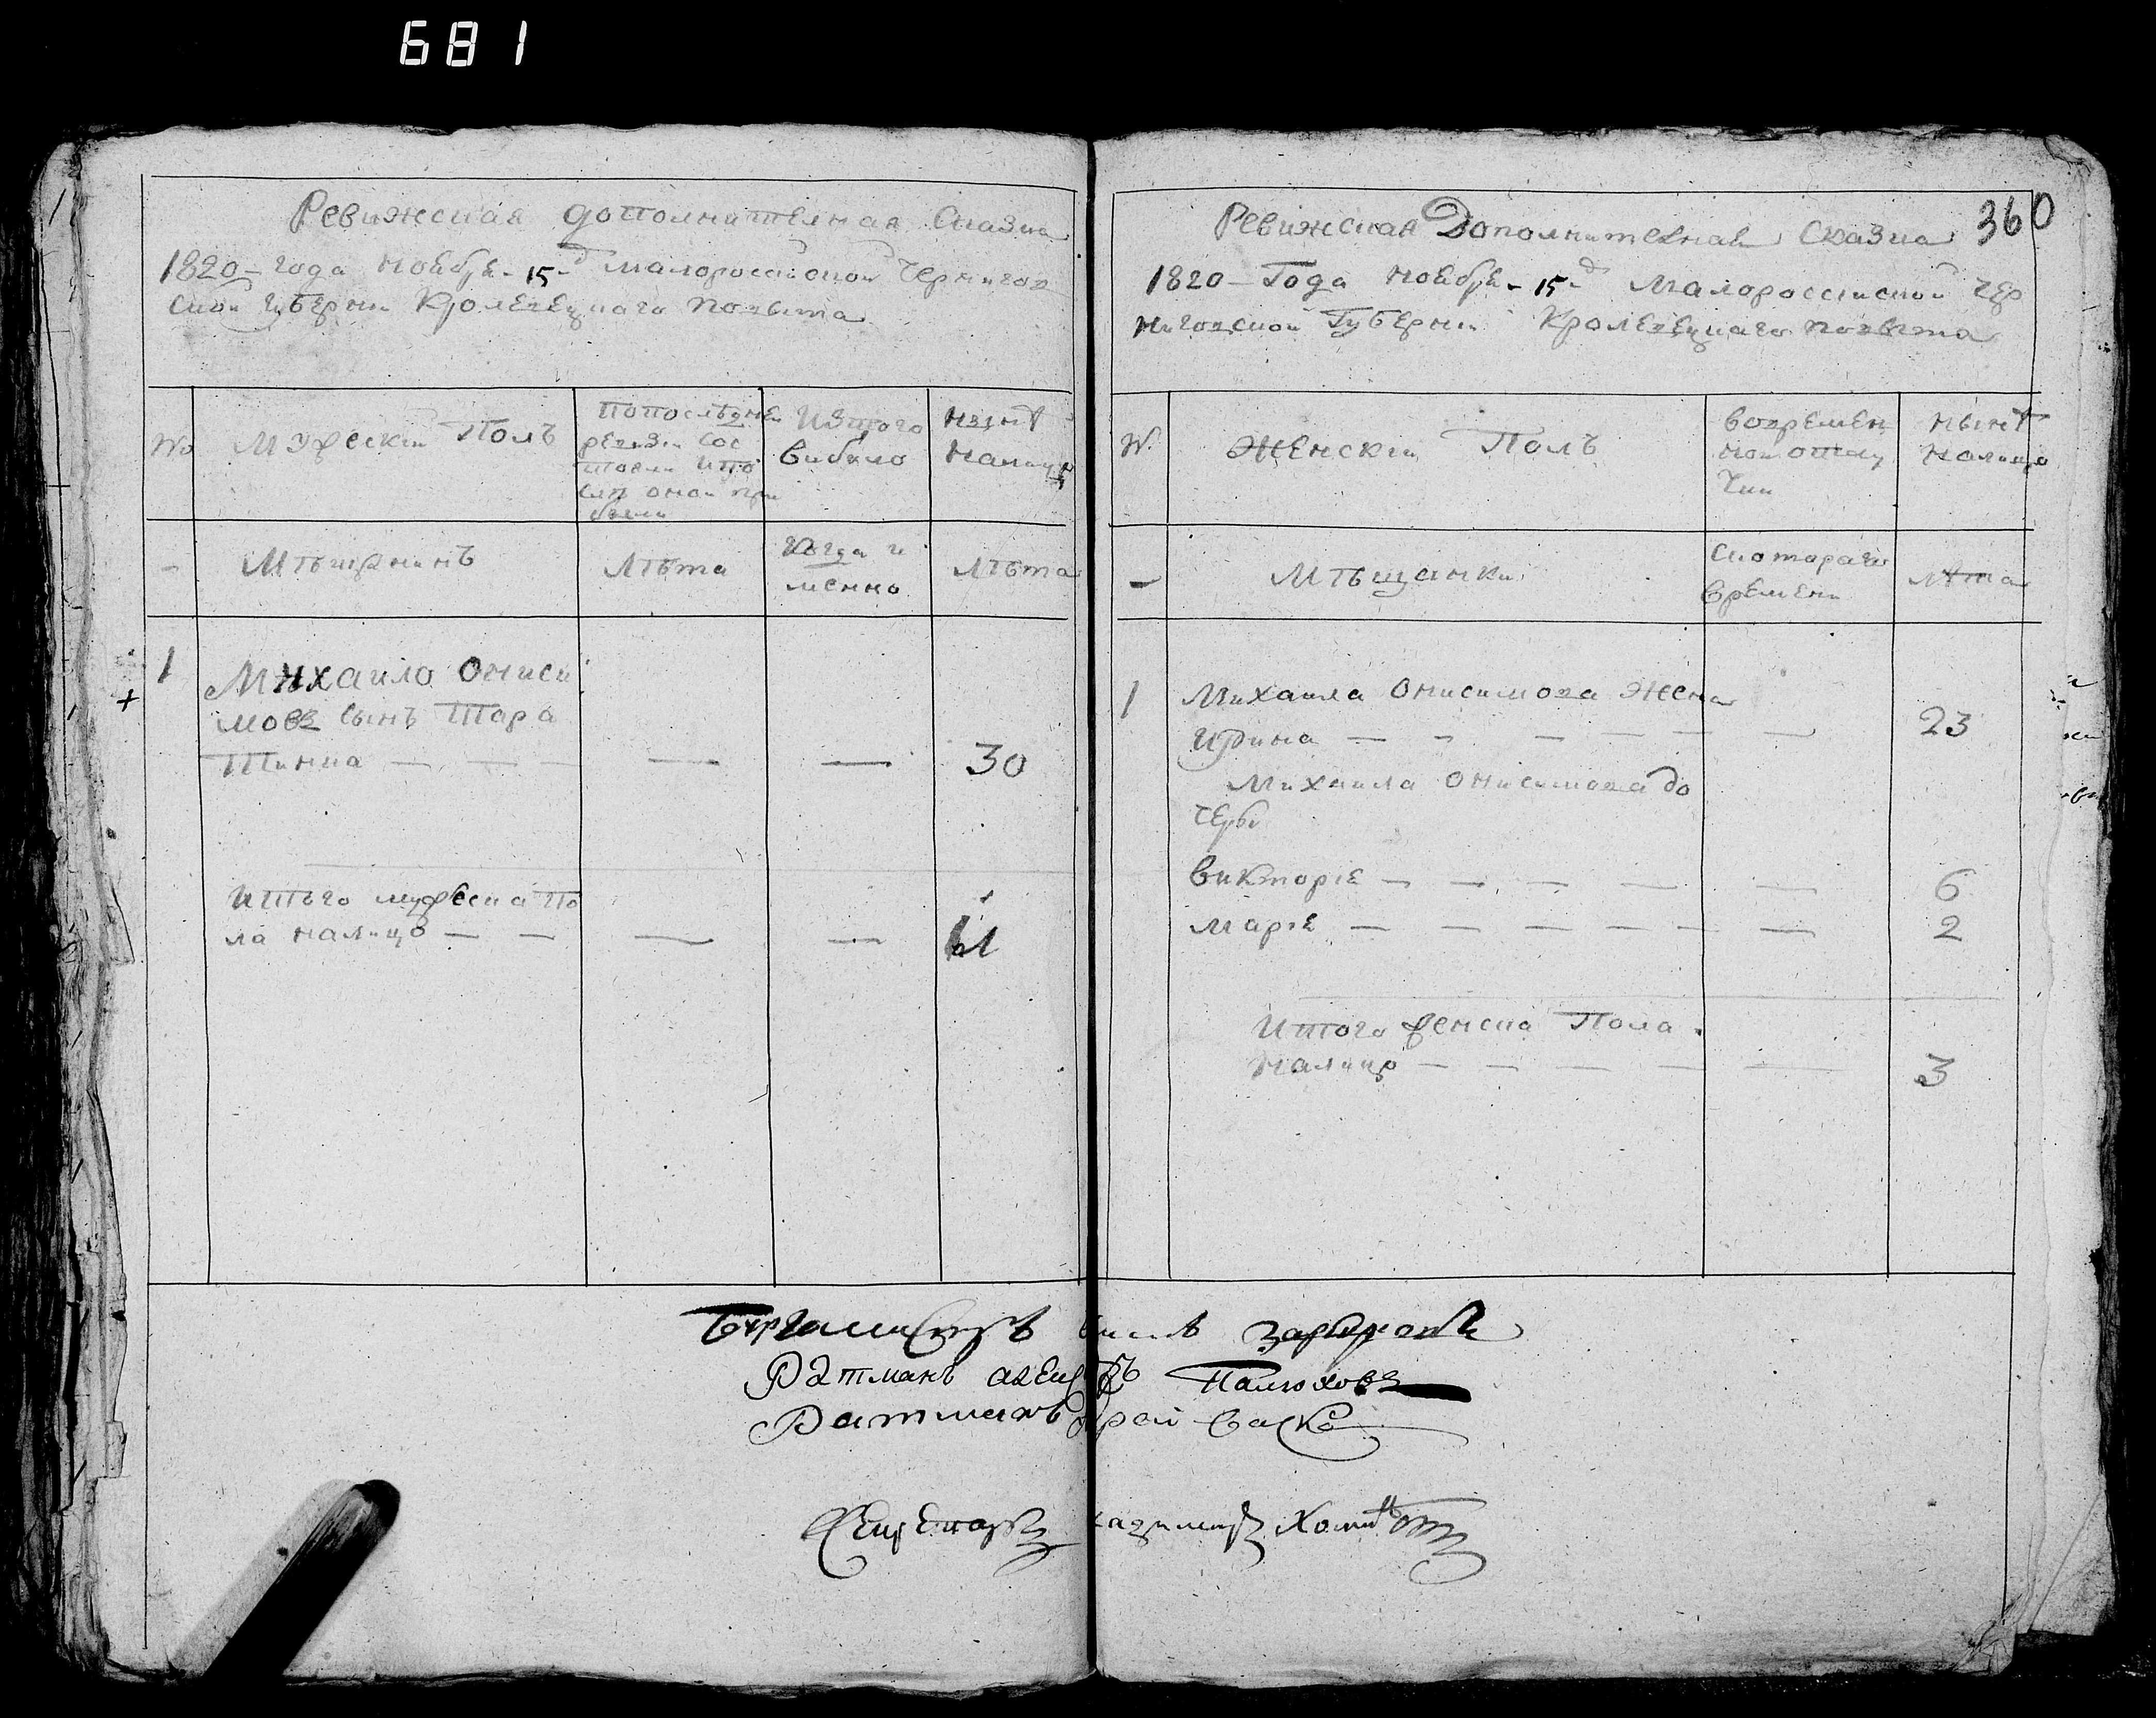 681
Ревижская дополнителная Сказка
1820 - года Ноября - 15 - д Малороссiиской Чернигов
ской губернiи Кролевецкаго повыта
№
Мужескiи Полъ
попослѣднеи
ревизiи сос
тояли ипо
слѣ онои при
были
Изтого
выбило
нынѣ
налицо
-
Мѣщанинъ
Лѣта
Когда и
менно
Лѣта
1
Михаило Ониси
мовъ сынъ Тара
30
Итого мужеска по
ла налицо — —
1
Ревижская Дополнителная Сказка 360
1820 - Года Ноября - 15 - д Малороссiиской Чер
ниговской Губернiи Кролевецкаго повыта
№
Женскiи Полъ
вовремен
ной отлу
чки
нынѣ
налицо
-
Мѣщанки
Скотораго
времени
Лѣта
1
Михаила Онисимова жена
Ирина — — — — — — 23
Михаила Онисимова до
черы
Викторiя — — — — — 6
Марiя — — — — — — 2
Итого женска Пола
налицо — — — — — 3
Бургомистръ
Ратманъ Палюховъ
Ратманъ
Секретаръ